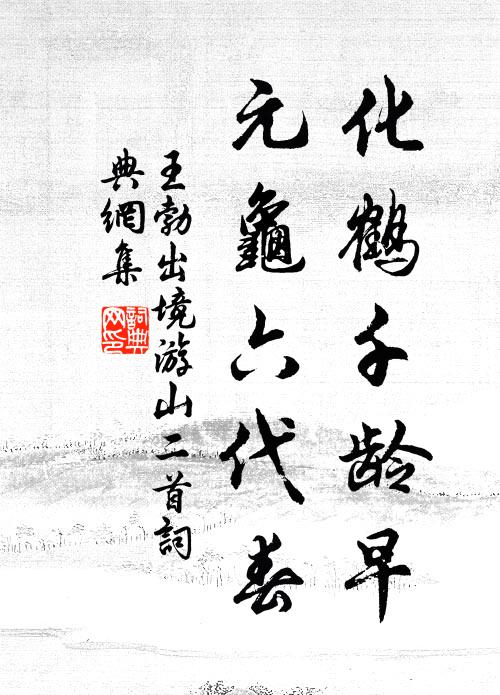 化鹤千龄早
元龜六代春
王勃出境游山二首詞
典網集
詞典网印